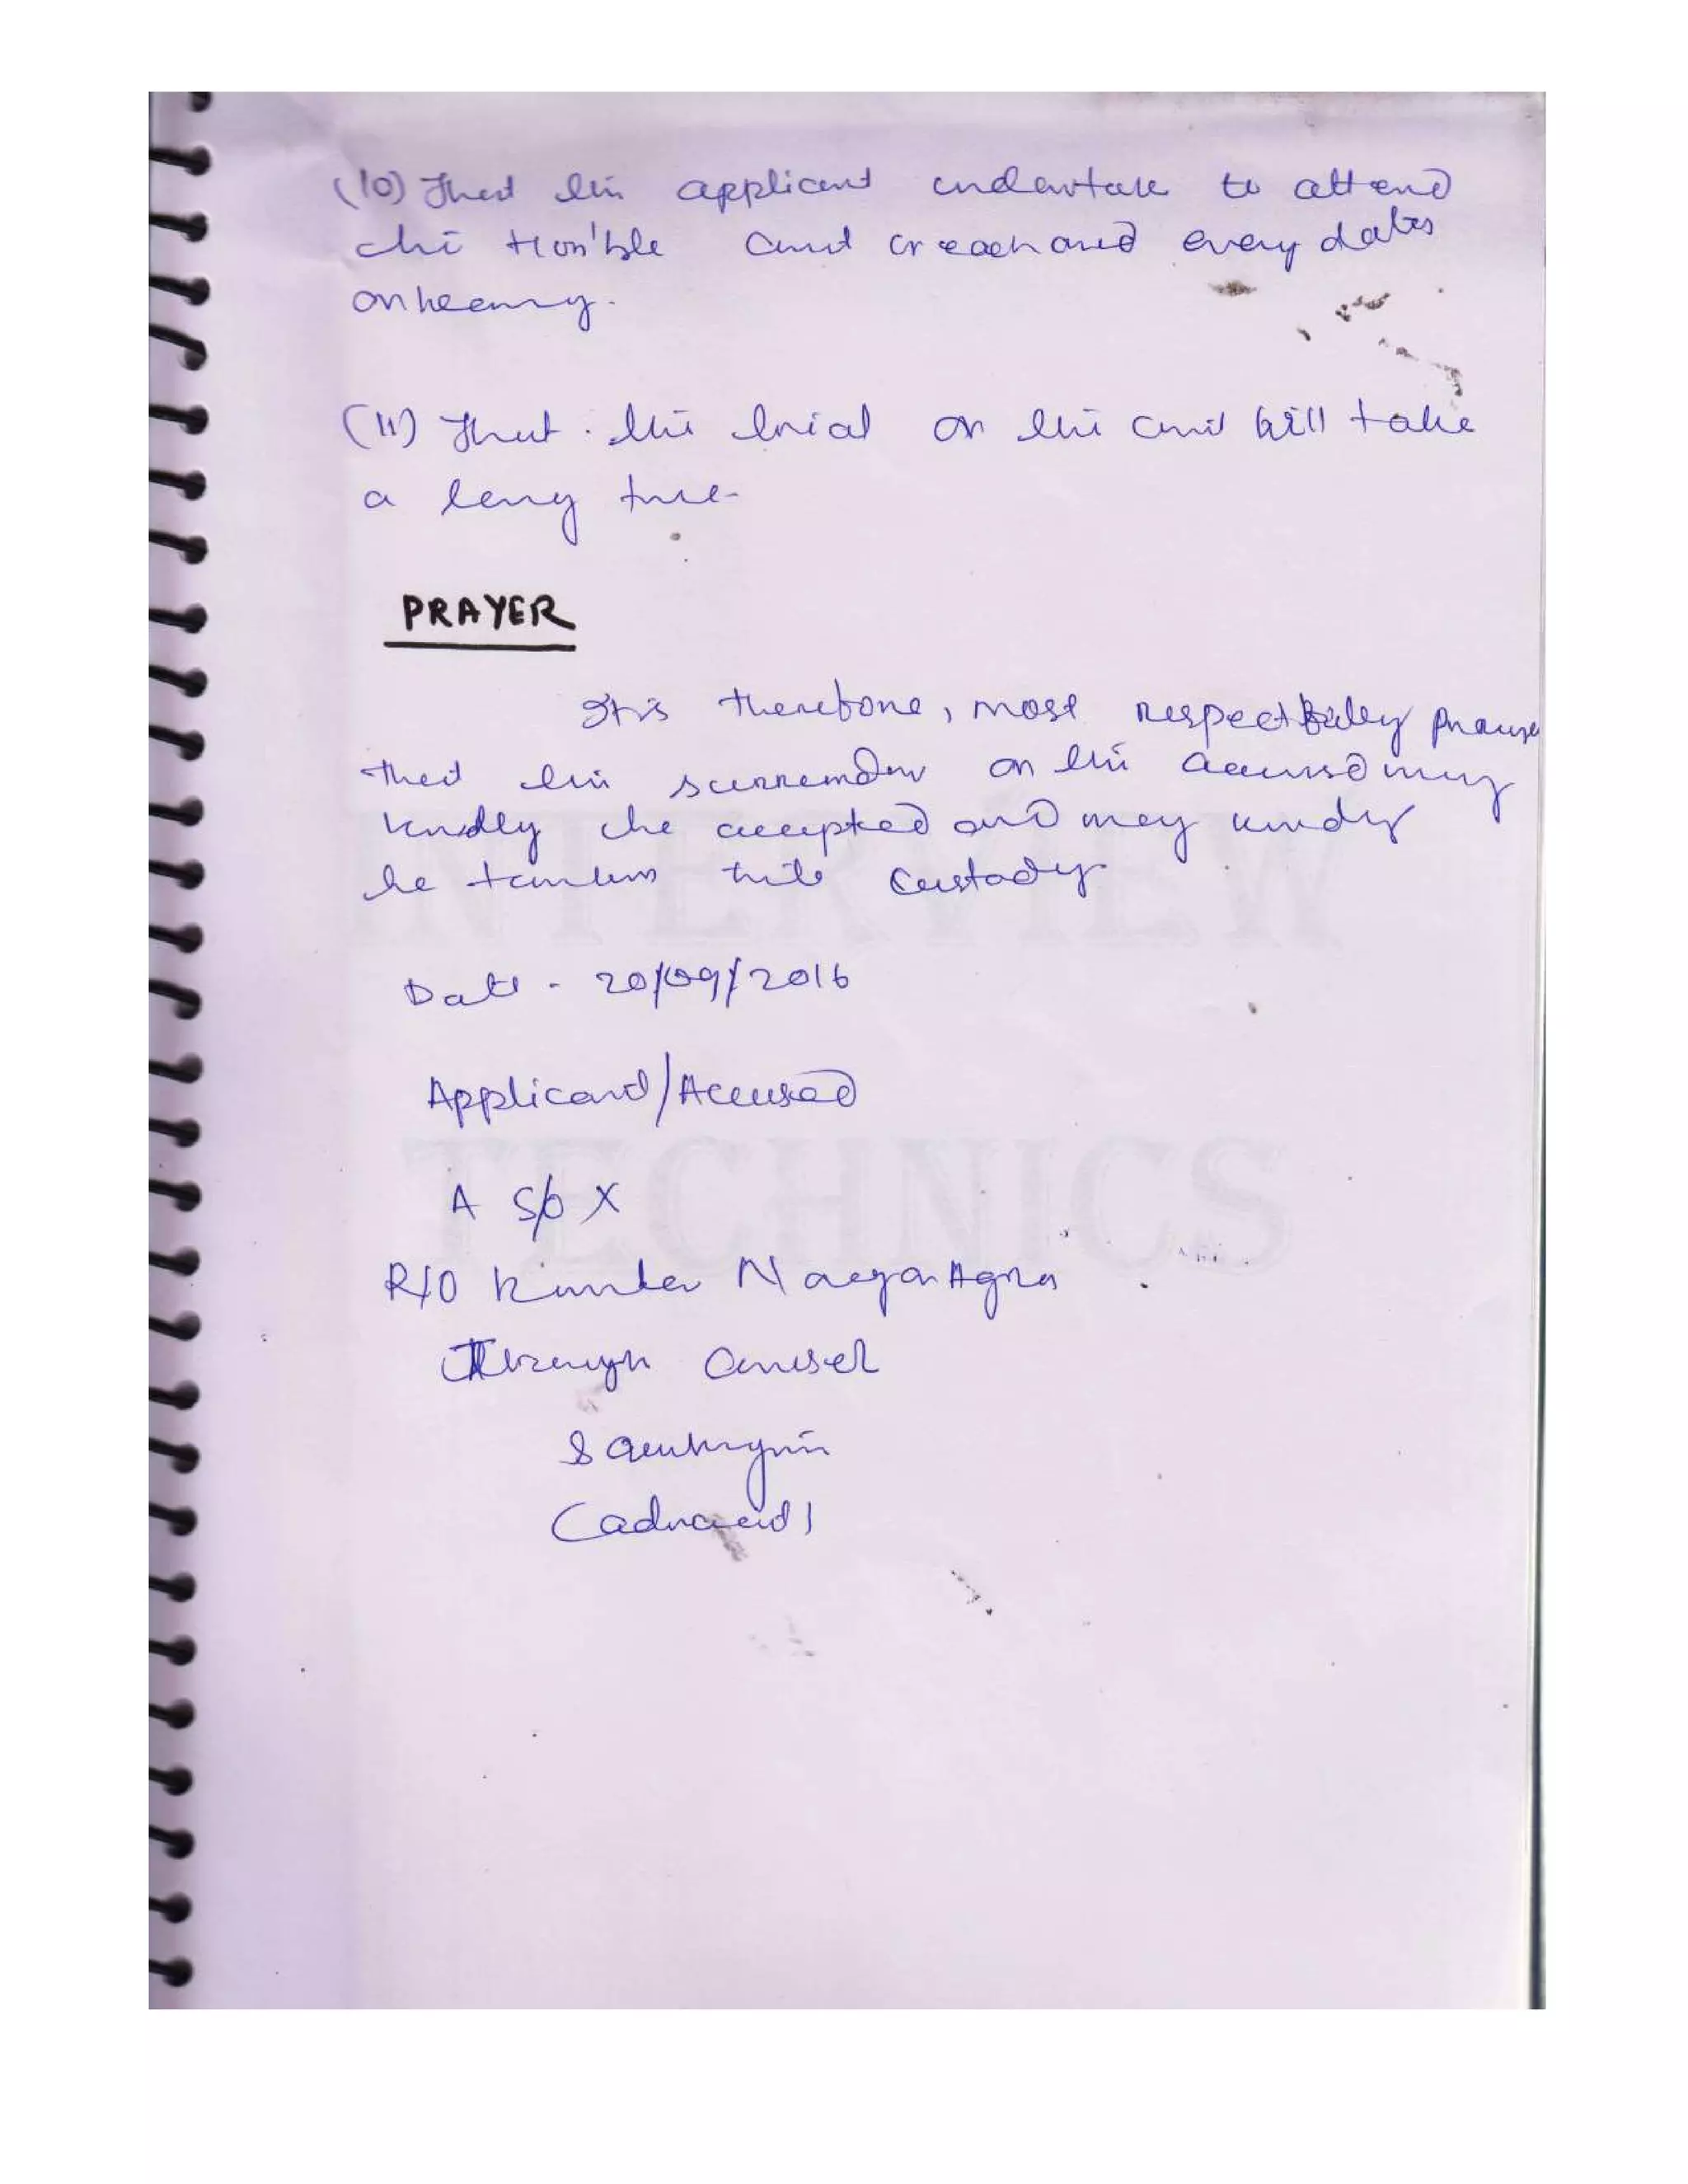 (10) That the applicant undertake to attend
the Hon'ble Court on each and every dates
of hearing.
(11) That the trial of the case will take
a long time
PRAYER
It is therefore, most respectfully prayed
that the surrender of the accused may
kindly be accepted and may kindly
be taken into custody
INTERVIEW
Date - 20/09/2016
Applicant/Accused
TECHNICS
A S/o X
R/O Nagar Agra
Through Counsel
(advocate)